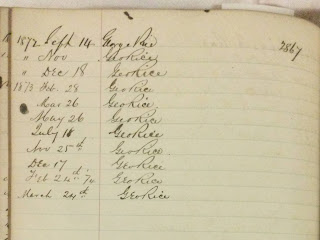 1872 Sept 14 George Rice 2867
" Nov Geo Rice
" Dec 18 Geo Rice
1873 Feb 28 Geo Rice
Mar 26 Geo Rice
May 26 Geo Rice
July 18 Geo Rice
Nov 25th Geo Rice
Dec 17 Geo Rice
Feb 24th 74 Geo Rice
March 24th Geo Rice